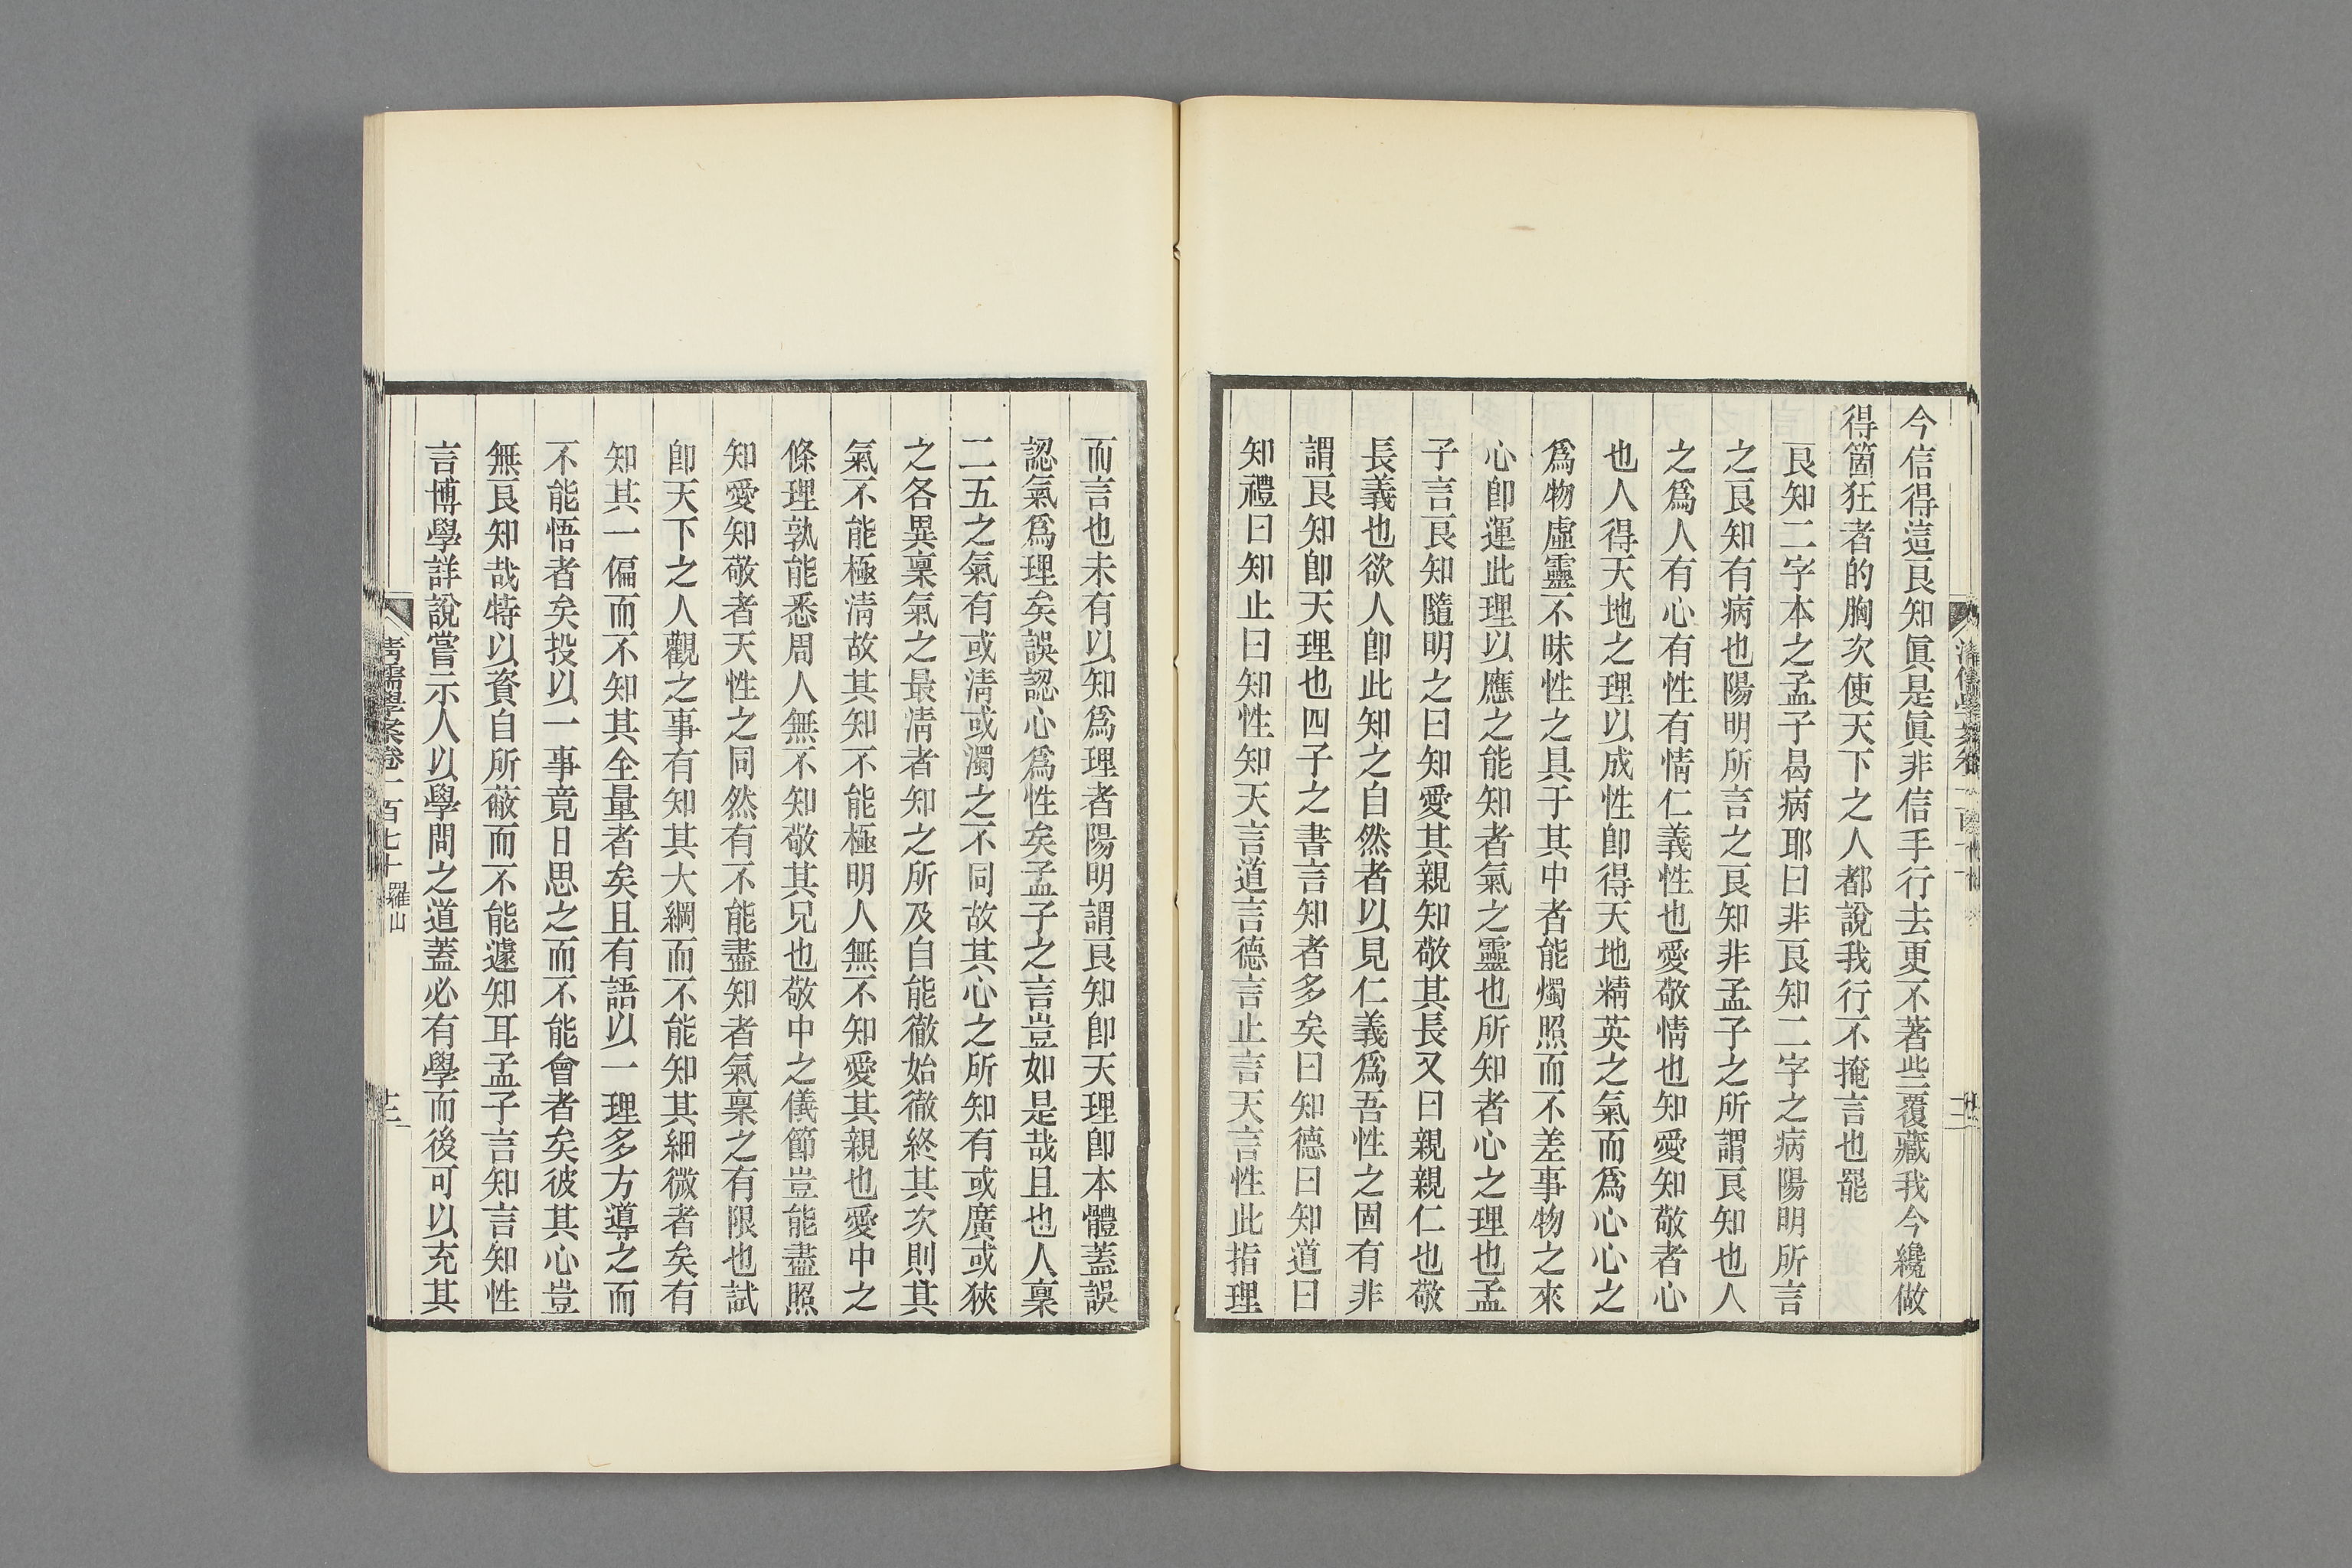 今信得這良知眞是眞非信手行去更不著些覆藏我今纔做
得箇狂者的胸次使天下之人都說我行不掩言也罷
良知二字本之孟子曷病耶曰非良知二字之病陽明所言
之良知有病也陽明所言之良知非孟子之所謂良知也人
之爲人有心有性有情仁義性也愛敬情也知愛知敬者心
也人得天地之理以成性卽得天地精英之氣而爲心心之
爲物虛靈不昧性之具于其中者能燭照而不差事物之來
心卽運此理以應之能知者氣之靈也所知者心之理也孟
子言良知隨明之曰知愛其親知敬其長又曰親親仁也敬
長義也欲人卽此知之自然者以見仁義爲吾性之固有非
謂良知卽天理也四子之書言知者多矣曰知德曰知道曰
知禮曰知止曰知性知天言道言德言止言天言性此指理
而言也未有以知爲理者陽明謂良知卽天理卽本體蓋誤
認氣爲理矣誤認心爲性矣孟子之言豈如是哉且也人稟
二五之氣有或淸或濁之不同故其心之所知有或廣或狹
之各異稟氣之最淸者知之所及自能徹始徹終其次則其
氣不能極淸故其知不能極明人無不知愛其親也愛中之
條理孰能悉周人無不知敬其兄也敬中之儀節豈能盡照
知愛知敬者天性之同然有不能盡知者氣稟之有限也試
卽天下之人觀之事有知其大綱而不能知其細微者矣有
知其一偏而不知其全量者矣且有語以一理多方導之而
不能悟者矣投以一事竟日思之而不能會者矣彼其心豈
無良知哉特以資自所蔽而不能遽知耳孟子言知言知性
言博學詳說嘗示人以學問之道蓋必有學而後可以充其
淸儒學案卷一百七十 羅山